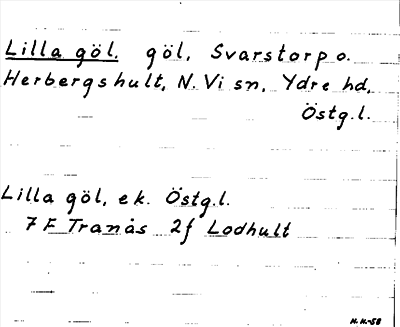 Lilla göl. göl, Svarstorp o.
Herbergshult, N. Vi sn, Ydre hd,
Östg.l.
Lilla göl, ek. Östg.l.
7 F Tranås 2f Lodhult
N.N.-58